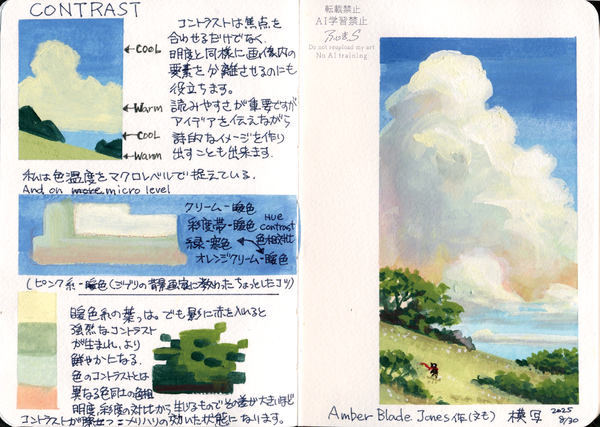 CONTRAST
コントラストは焦点を
合わせるだけでなく、
明度と同様に画像内の
要素を分離させるのにも
役立ちます。
読みやすさが重要ですが
アイデアを伝えながら
詩的なイメージを作り
出すことも出来ます.
←COOL
←Warm
←COOL
←Warm
私は色温度をマクロレベルで捉えている.
And on more micro level
クリーム-暖色
彩度帯-暖色
緑-寒色
オレンジクリーム-暖色
HUE
contrast
色相対比
(ピンク系-暖色(ジブリの
に教わったちょっとしたコツ)
暖色系の葉っぱ。でも影に赤を入れると
強烈なコントラスト
が生まれ、より
鮮やかになる.
色のコントラストとは
異なる色同士の色相
明度、彩度の対比から生じるもので その差が大きいほど
コントラストが際立つ=メリハリの効いた状態になります。
転載禁止
AI学習禁止
Do not reupload my art
No AI training
Amber Blade Jones作(文も) 模写
2025
8/30